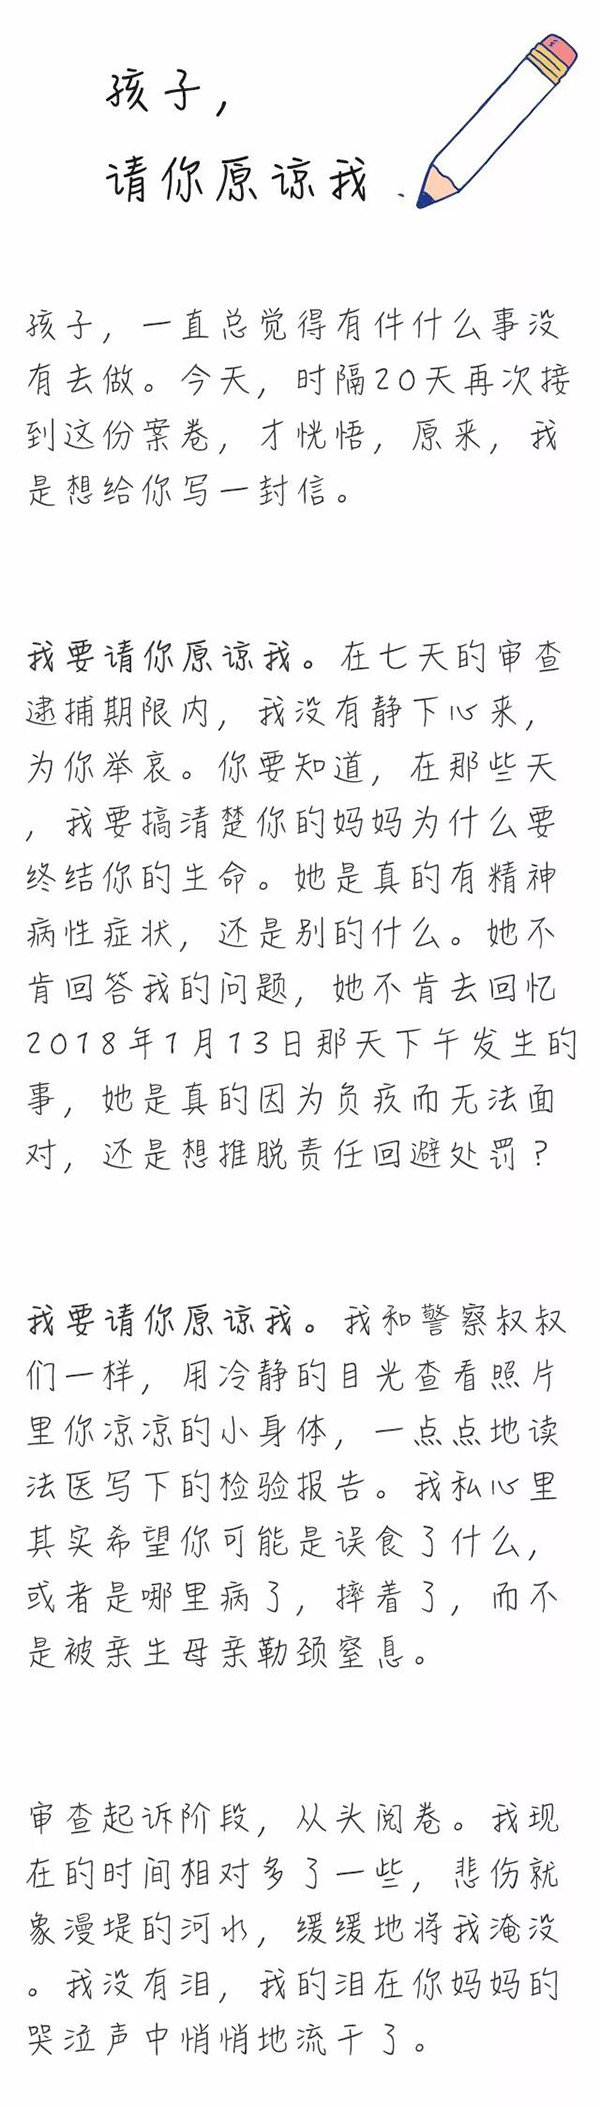 孩子，
请你原谅我
孩子，一直总觉得有件什么事没
有去做。今天，时隔20天再次接
到这份案卷，才恍悟，原来，我
是想给你写一封信。
我要请你原谅我。在七天的审查
逮捕期限内，我没有静下心来，
为你举哀。你要知道，在那些天
，我要搞清楚你的妈妈为什么要
终结你的生命。她是真的有精神
病性症状，还是别的什么。她不
肯回答我的问题，她不肯去回忆
2018年1月13日那天下午发生的
事，她是真的因为负疚而无法面
对，还是想推脱责任回避处罚？
我要请你原谅我。我和警察叔叔
们一样，用冷静的目光查看照片
里你凉凉的小身体，一点点地读
法医写下的检验报告。我私心里
其实希望你可能是误食了什么，
或者是哪里病了，摔着了，而不
是被亲生母亲勒颈窒息。
审查起诉阶段，从头阅卷。我现
在的时间相对多了一些，悲伤就
象漫堤的河水，缓缓地将我淹没
。我没有泪，我的泪在你妈妈的
哭泣声中悄悄地流干了。